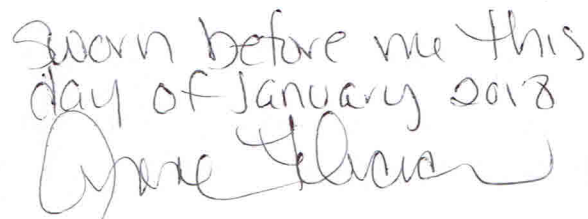 Sworn before me this
day of January 2018